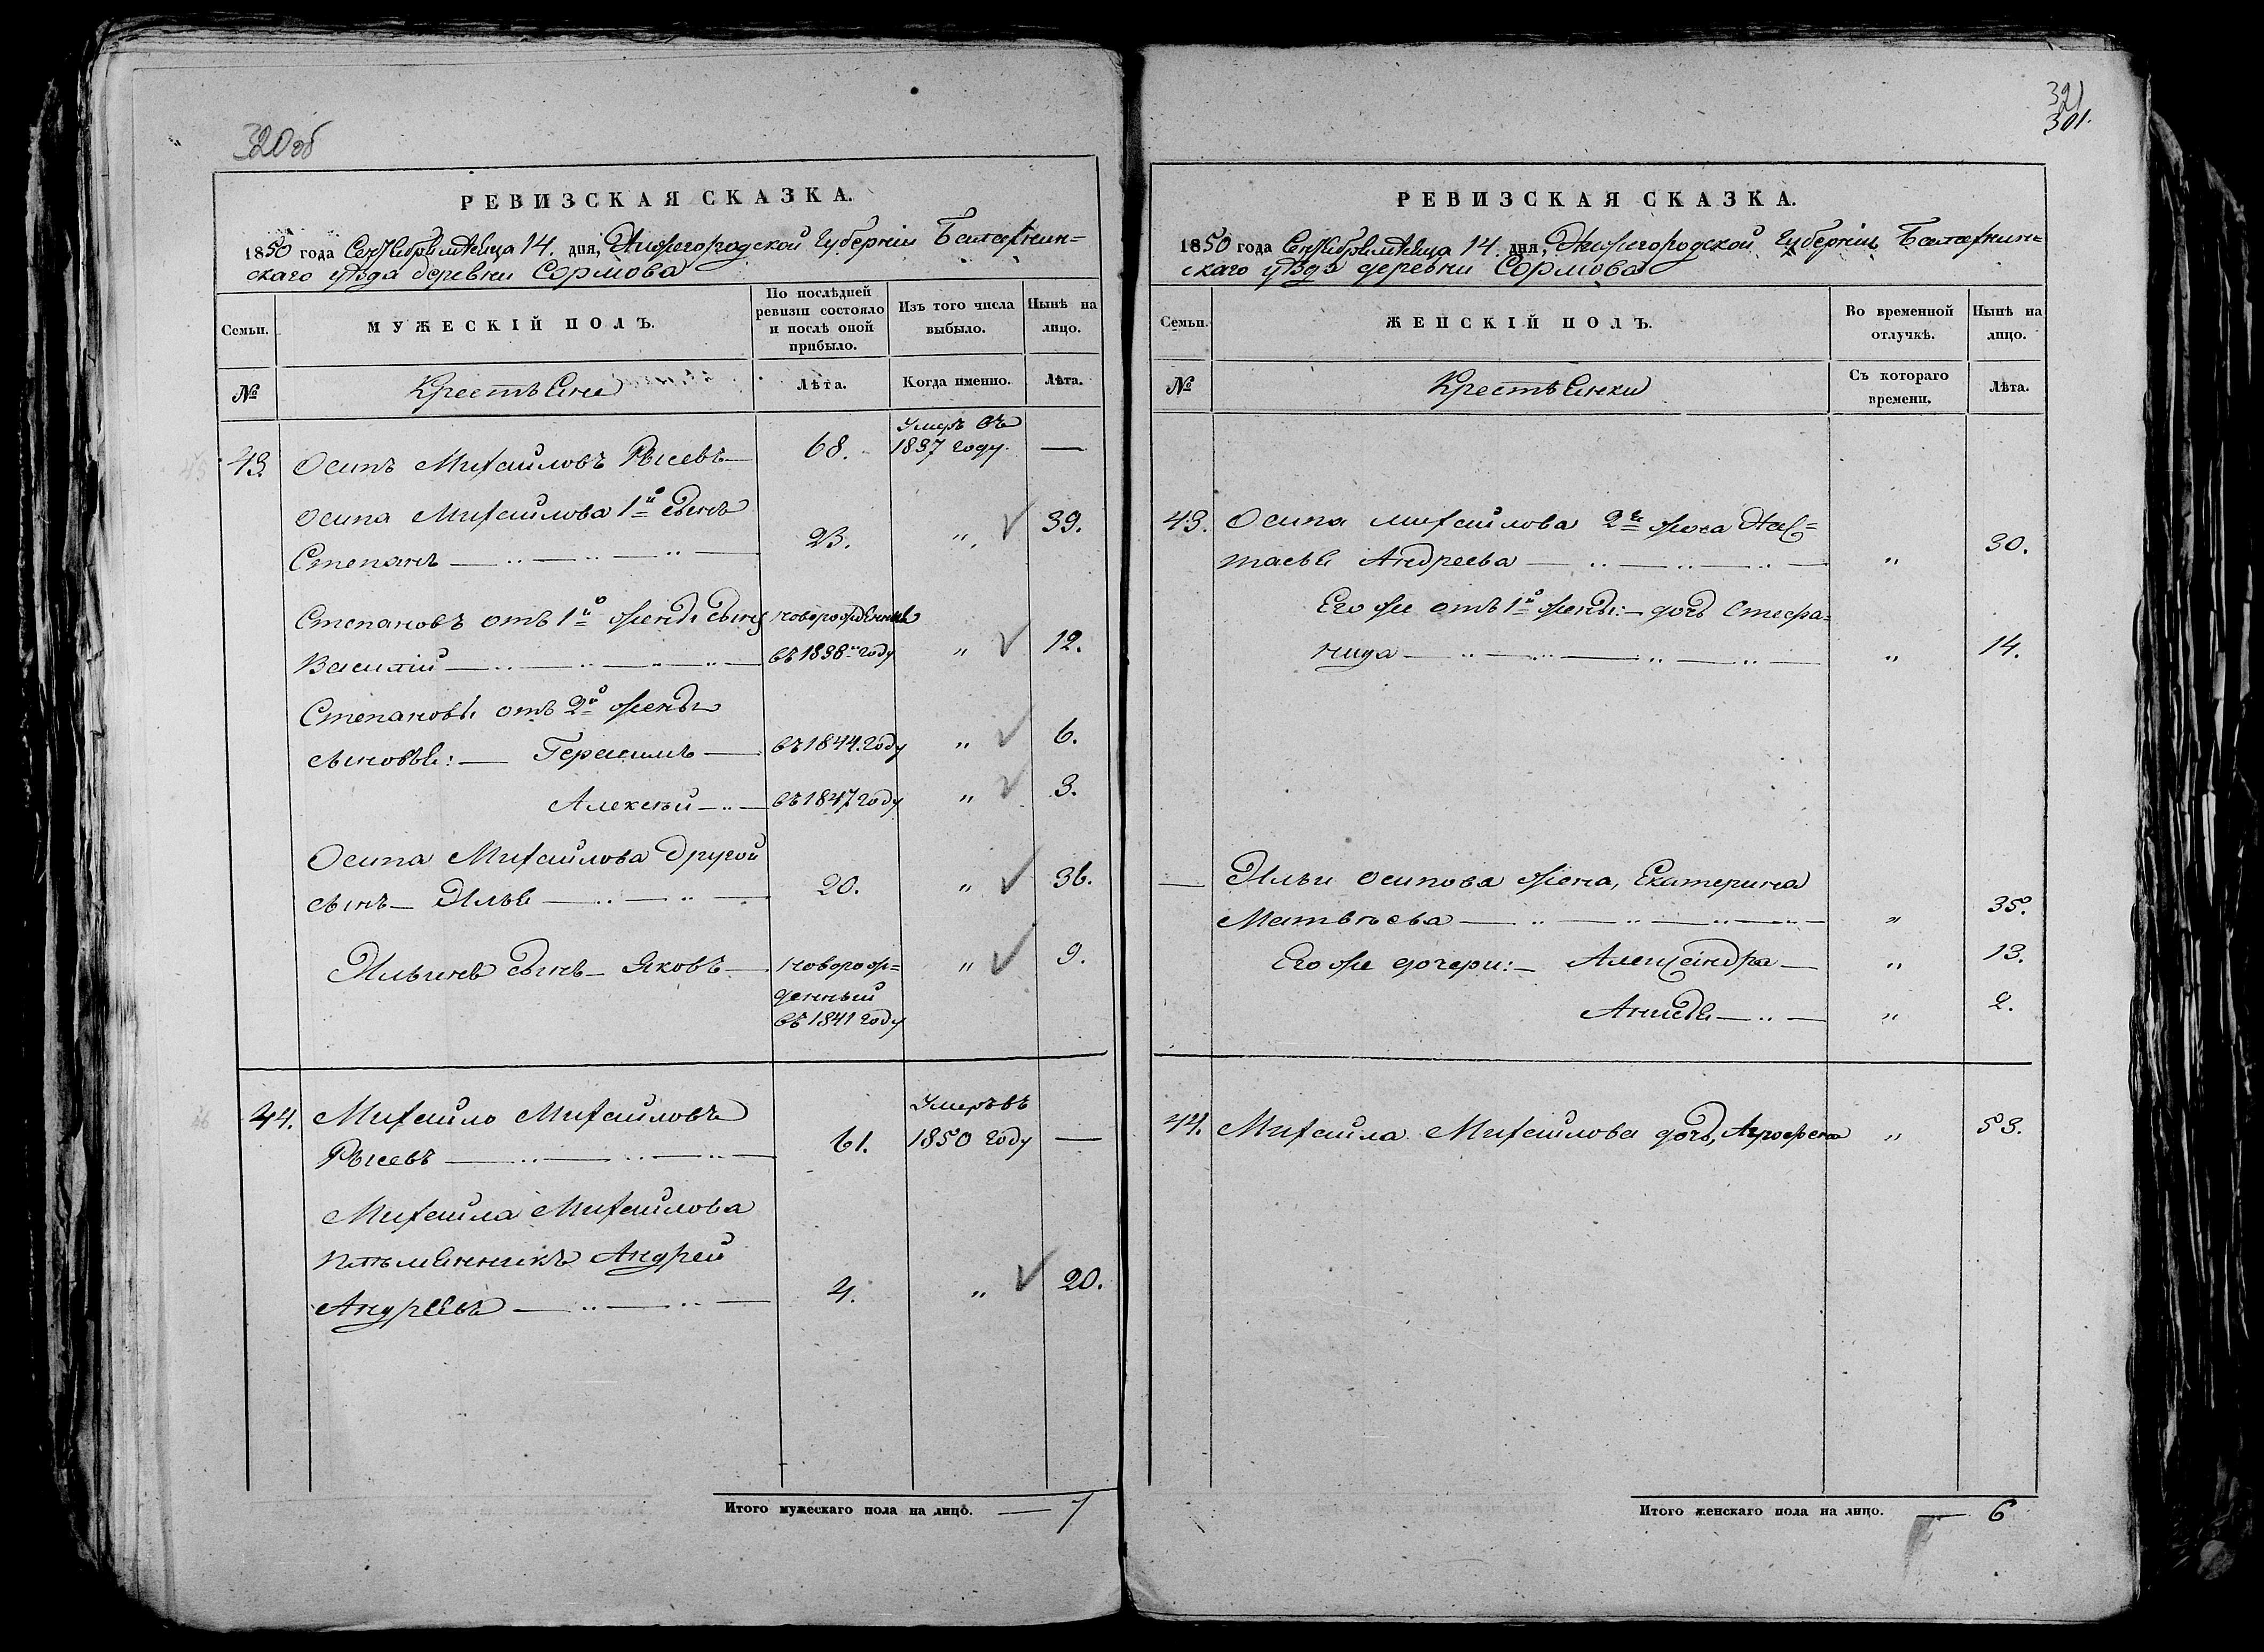 320 об
РЕВИЗСКАЯ СКАЗКА.
1850 года Сентября месяца 14. дня, Нижегородской губерніи Балахнин=
скаго уѣзда деревни Сормова
Семьи.
МУЖЕСКІЙ ПОЛЪ.
По послѣдней ревизіи состояло и послѣ оной прибыло.
Изъ того числа выбыло.
Нынѣ на лицо.
№
Крестьяне
Лѣта.
Когда именно.
Лѣта.
43. Осипъ Михайловъ Рысевъ— 68. Умеръ въ 1837 году. —
Осипа Михайлова 1й сынъ
Степанъ 23. „ 39.
Степановъ отъ 1й жены сынъ новорожденный
Василій въ 1838м году „ 12.
Степановы отъ 2й жены
сыновья:— Герасимъ— въ 1844. году „ 6.
Алексѣй въ 1847 году „ 3.
Осипа Михайлова другой
сынъ— Илья 20. „ 36.
Ильинъ сынъ— Яковъ— новорож=
денный
въ 1841 году „ 9.
44. Михайло Михайловъ
Рысевъ 61. Умеръ въ 1850 году —
Михайла Михайлова
племянникъ Андрей
Андреевъ 4. „ 20.
Итого мужескаго пола на лицо. — 7
321
301.
РЕВИЗСКАЯ СКАЗКА.
1850 года Сентября месяца 14 дня, Нижегородской губерніи Балахнин=
скаго уѣзда деревни Сормова
Семьи.
ЖЕНСКІЙ ПОЛЪ.
Во временной отлучкѣ.
Нынѣ на лицо.
№
Крестьянки
Съ котораго времени.
Лѣта.
43. Осипа Михайлова 2я жена Нас=
тасья Андреева „ 30.
Его же отъ 1й жены:— дочь Стефа=
нида „ 14.
— Ильи Осипова жена, Екатерина
Матвѣева „ 35.
Его же дочери:— Александра— „ 13.
Анисья „ 2.
44. Михайла Михайлова дочь, Агрофена „ 53.
Итого женскаго пола на лицо. — 6